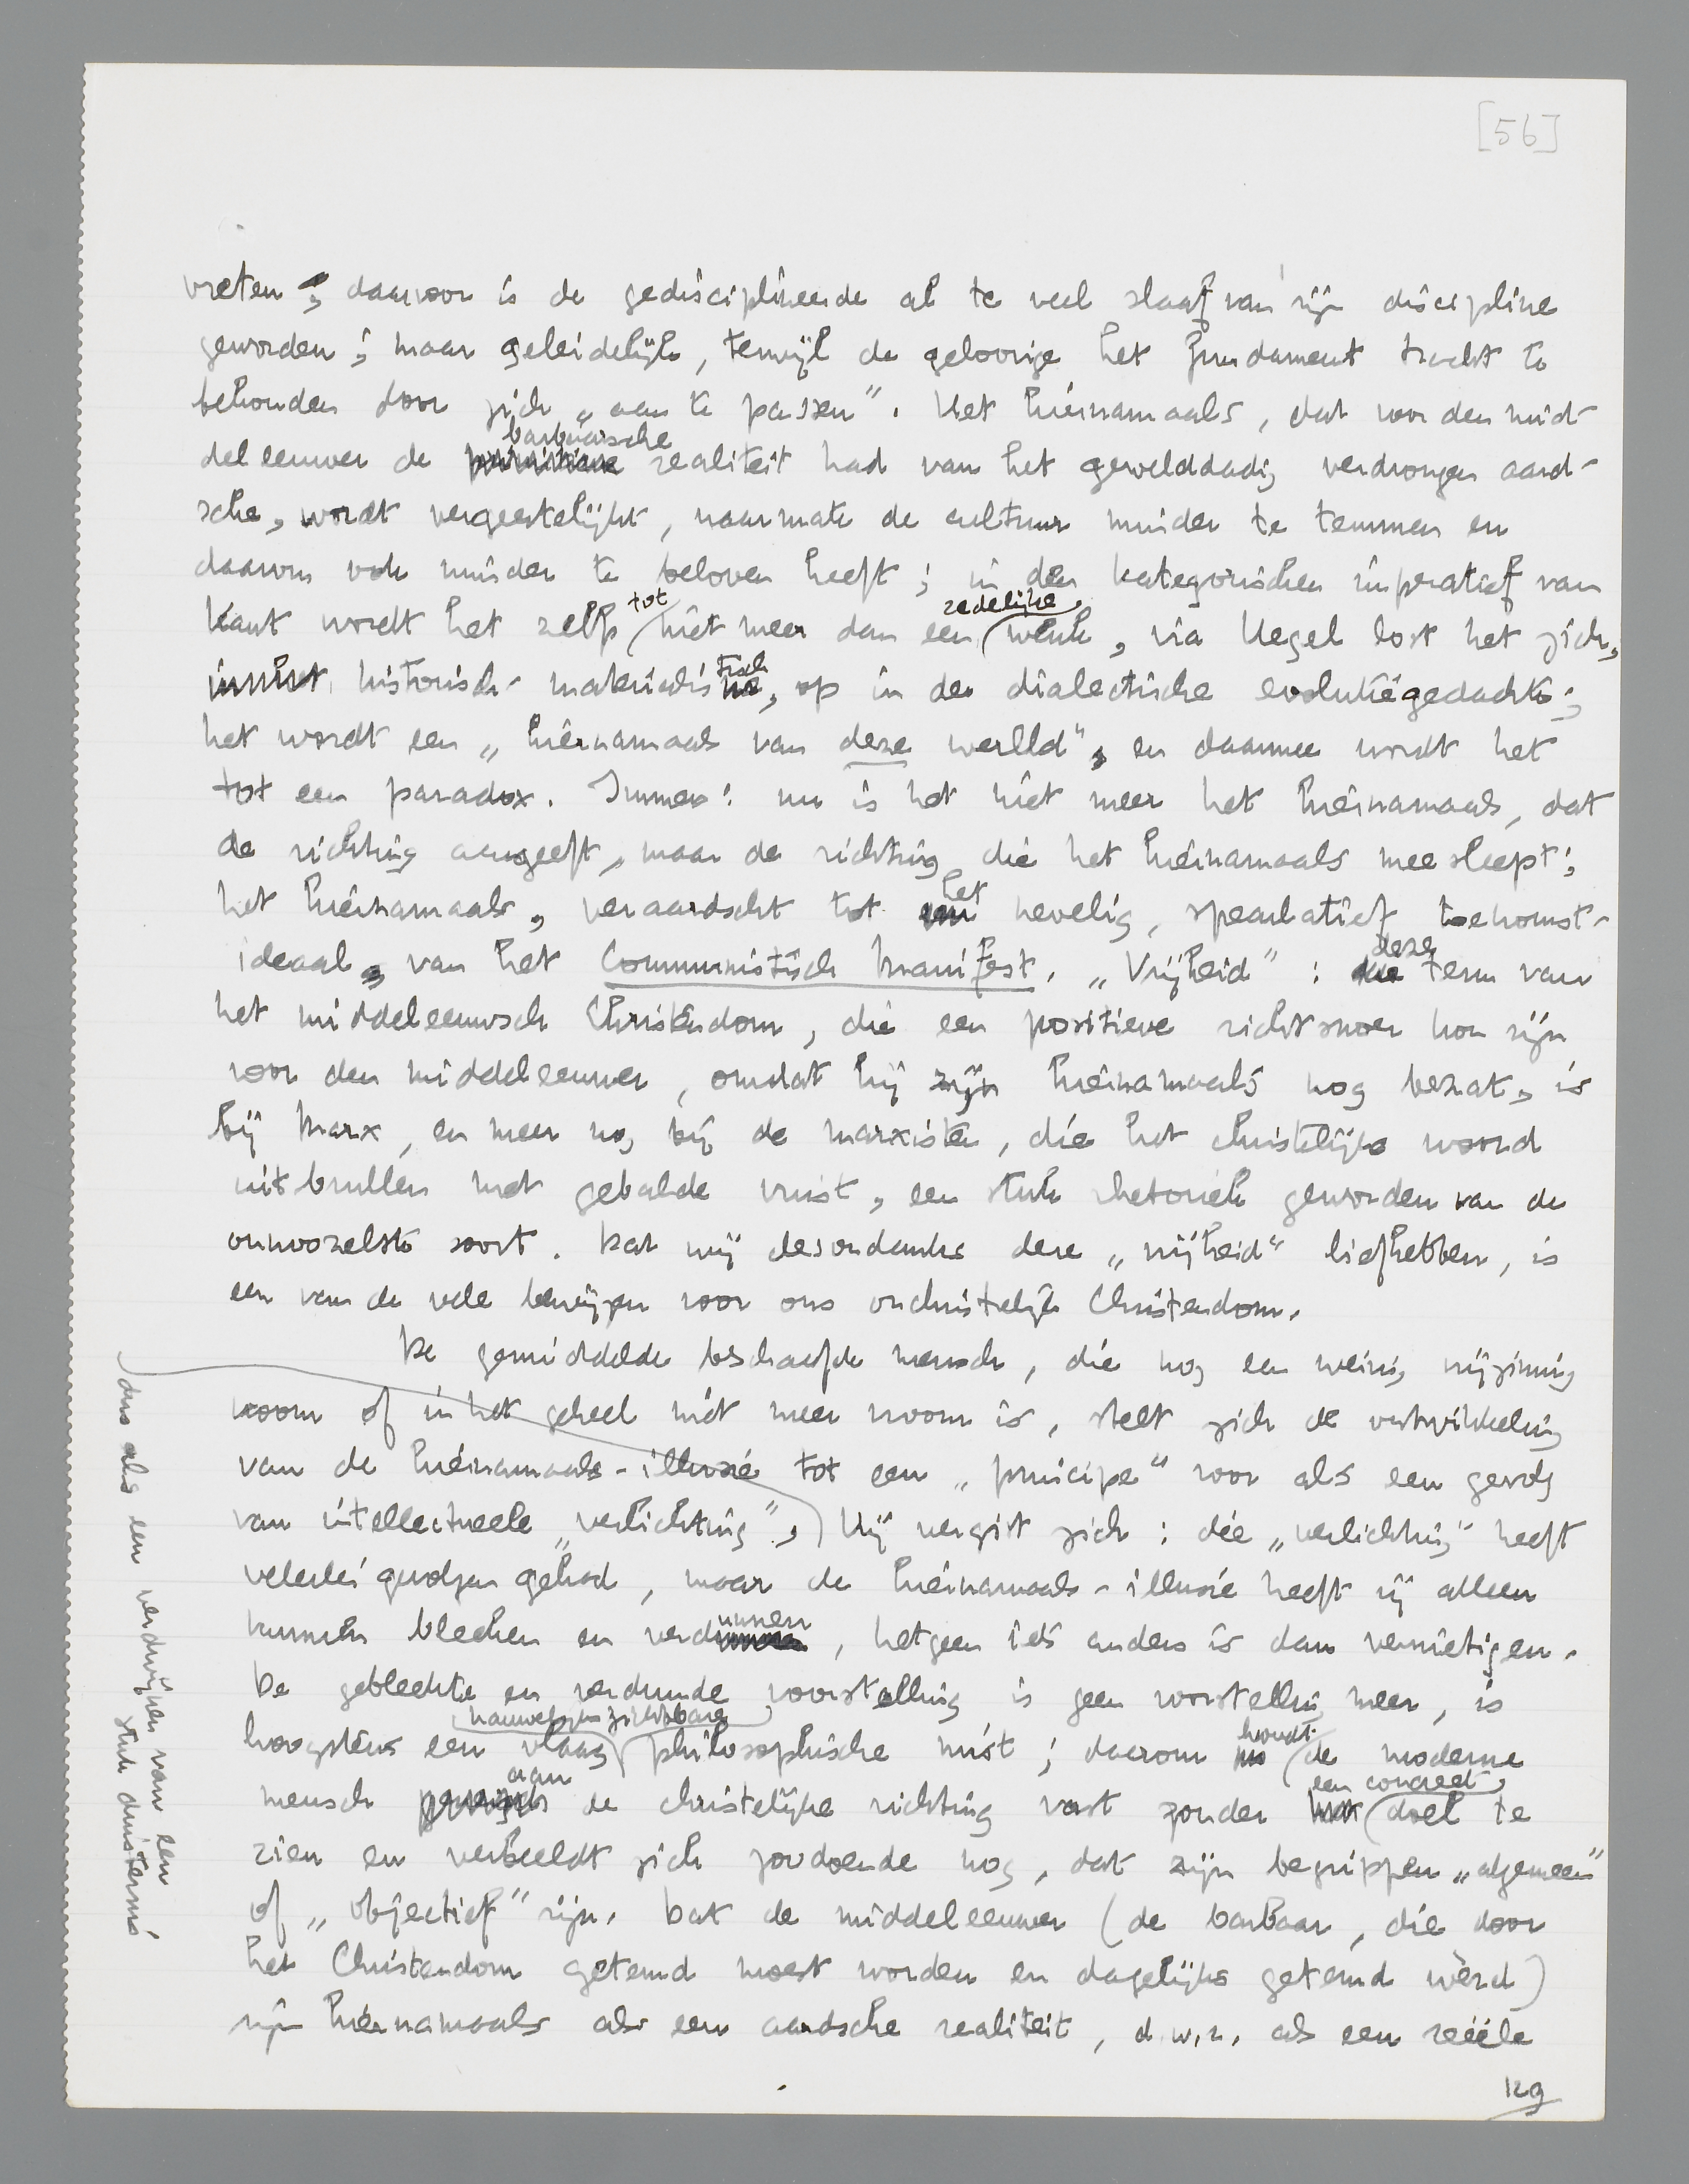 [56]
vreten; daarvoor is de gedisciplineerde al te veel slaaf van zijn discipline
geworden; maar geleidelijk, terwijl de geloovige het fundament tracht te
behouden door zich „aan te passen”. Het hiernamaals, dat voor den mid-
deleeuwer de barbaarsche realiteit had van het gewelddadig verdrongen aard-
sche, wordt vergeestelijkt, naarmate de cultuur minder te temmen en
daarom ook minder te beloven heeft; in den kategorischen imperatief van
Kant wordt het zelfs tot niet meer dan een zedelijke wenk, via Hegel lost het zich,
historisch-materialistisch, op in de dialectische evolutiegedachte;
het wordt een „hiernamaals van deze wereld”, en daarmee wordt het
tot een paradox. Immers: nu is het niet meer het hiernamaals, dat
de richting aangeeft, maar de richting, die het hiernamaals meesleept;
het hiernamaals, veraardscht tot het nevelig, speculatief toekomst-
ideaal, van het Communistisch Manifest. „Vrijheid”: deze term van
het middeleeuwsch Christendom, die een positieve richtsnoer kon zijn
voor den middeleeuwer, omdat hij zijn hiernamaals nog bezat, is
bij Marx, en meer nog bij de marxisten, die het christelijke woord
uitbrullen met gebalde vuist, een stuk rhetoriek geworden van de
onnoozelste soort. Dat wij desondanks deze „vrijheid” liefhebben, is
een van de vele bewijzen voor ons onchristelijk Christendom.
De gemiddelde beschaafde mensch, die nog een weinig vrijzinnig
vroom of in het geheel niet meer vroom is, stelt zich de ontwikkeling
van de hiernamaals-illusie tot een „principe” voor als een gevolg
van intellectueele „verlichting”, Hij vergist zich: die „verlichting” heeft
velerlei gevolgen gehad, maar de hiernamaals-illusie heeft zij alleen
kunnen bleeken en verdunnen, hetgeen iets anders is dan vernietigen.
De gebleekte en verdunde voorstelling is geen voorstelling meer, is
hoogstens een vlaag nauwelijks zichtbare philosophische mist; daarom houdt de moderne
mensch aan de christelijke richting vast zonder een concreet doel te
zien en verbeeldt zich zoodoende nog, dat zijn begrippen „algemeen”
of „objectief” zijn. Dat de middeleeuwer (de barbaar, die door
het Christendom getemd moest worden en dagelijks getemd wèrd)
zijn hiernamaals als een aardsche realiteit, d.w.z. als een reëele
129
dus als een verdwijnen van een
stuk duisternis